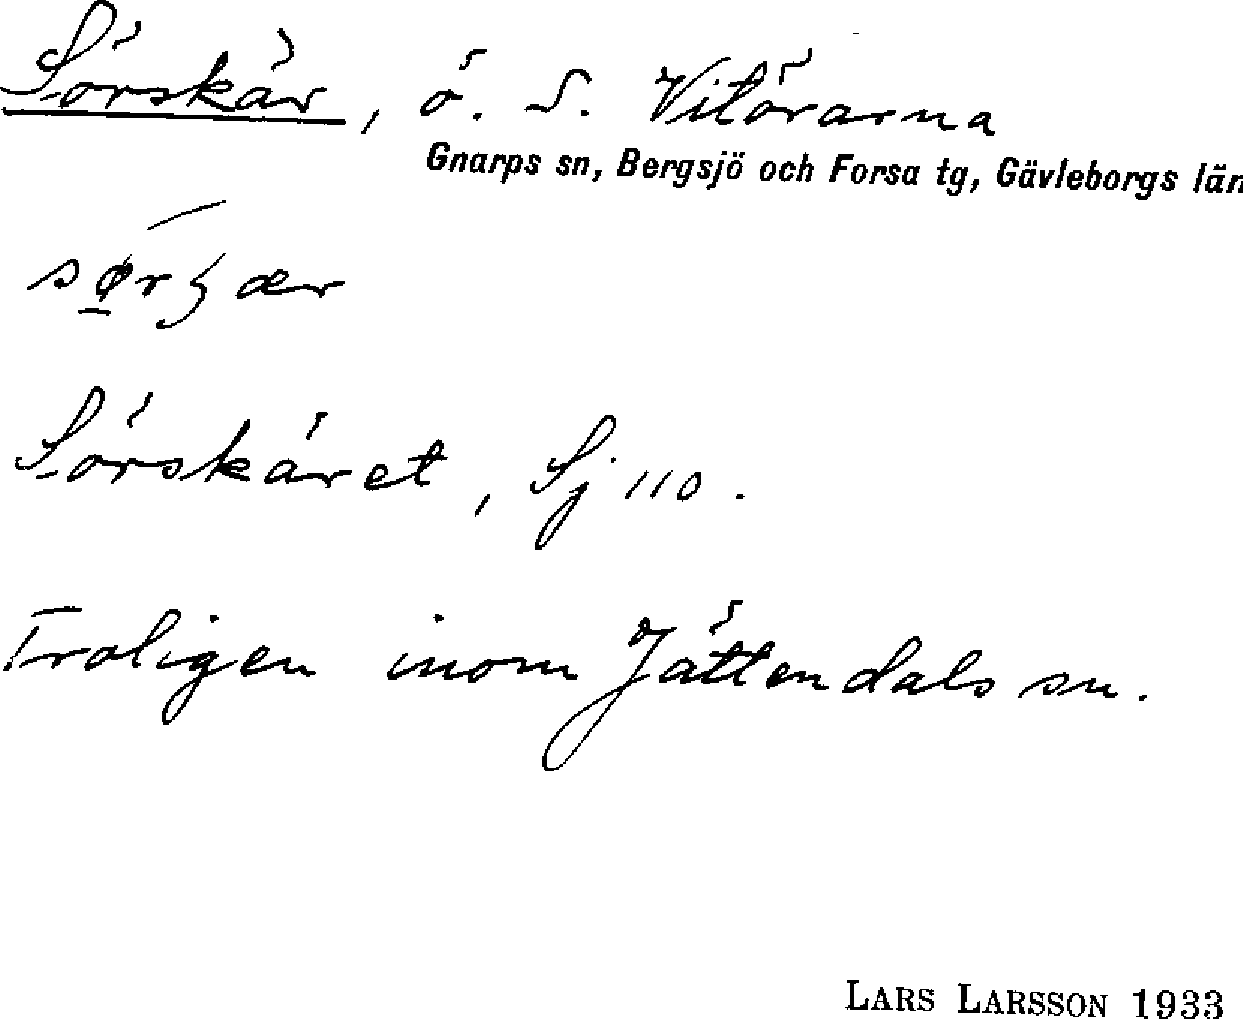 Sörskär, ö. S. Vitörarna
Gnarps sn, Bergsjö och Forsa tg, Gävleborgs län
Sörskäret, Sj 110.
Troligen inom Jättendals sn.
LARS LARSSON 1933